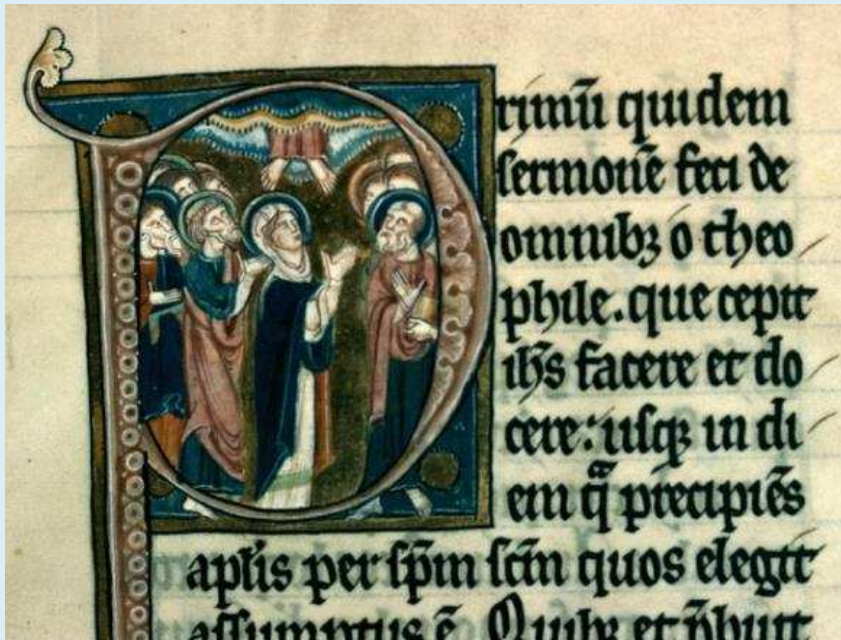 Primū quidem
sermonē feci de
omnibꝫ o theo
phile. que cepit
ih̄s facere et do
cere: usqꝫ in di
em qͣ precipiēs
apl̄is per sp̄m sc̄m quos elegit
assumptus ē. Quibꝫ et p̄buit